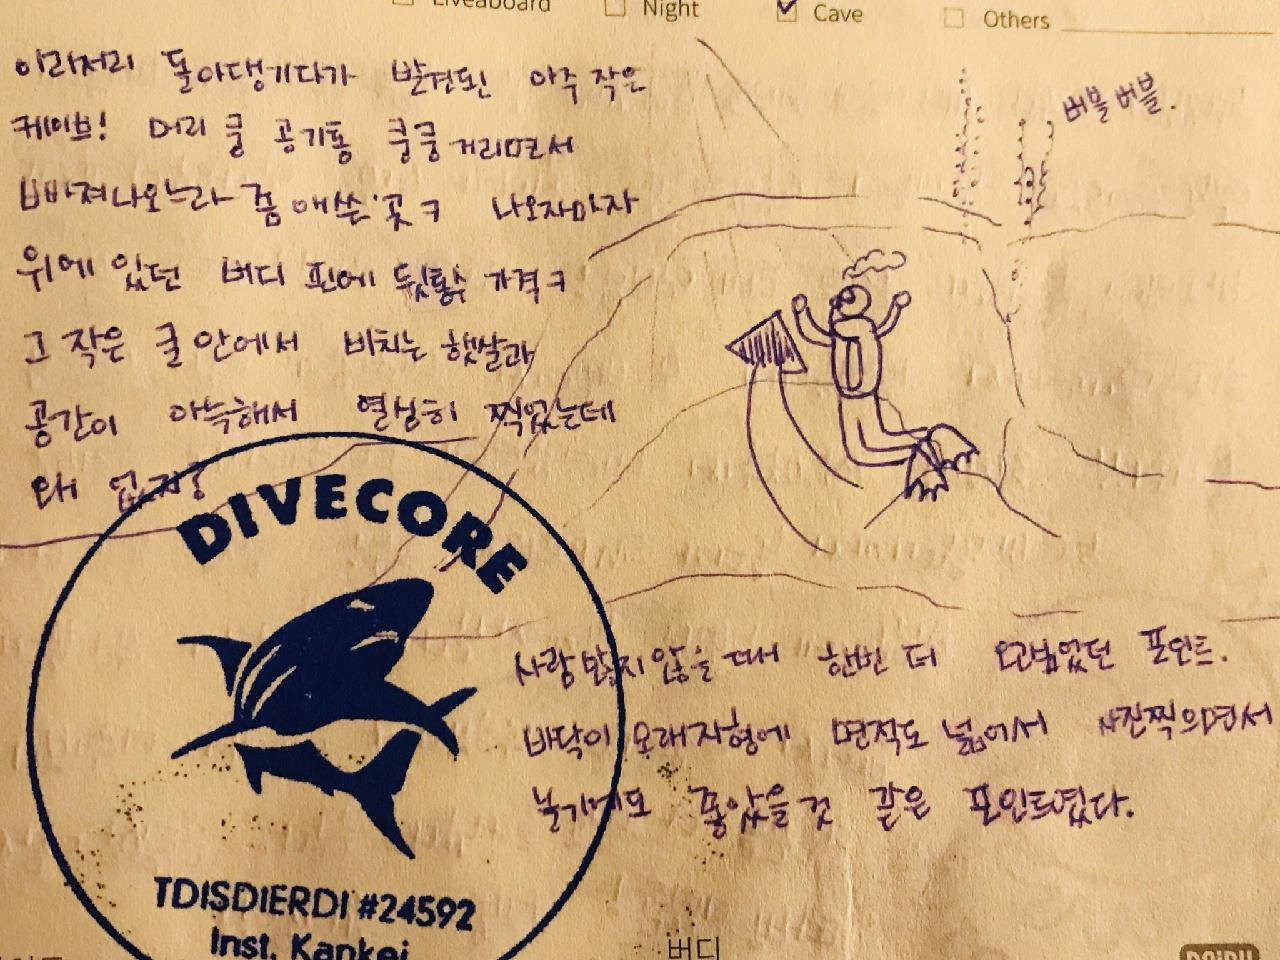 Liveaboard Night Cave Others
이리저리 돌아댕기다가 발견된 아주 작은
케이브! 머리 쿵 공기통 쿵쿵거리면서
빠져나오느라 좀 애쓴 곳ㅋ 나오자마자
위에 있던 버디 핀에 뒷통수 가격ㅋ
그 작은 굴 안에서 비치는 햇살과
공간이 아늑해서 열심히 찍었는데
왜 없지?
버블버블.
DIVECORE
TDISDIERDI #24592
Inst. Kankei
사람 많지 않을 때 한번 더 오고싶었던 포인트.
바닥이 모래지형에 면적도 넓어서 사진찍으면서
놀기에도 좋았을것 같은 포인트였다.
버디